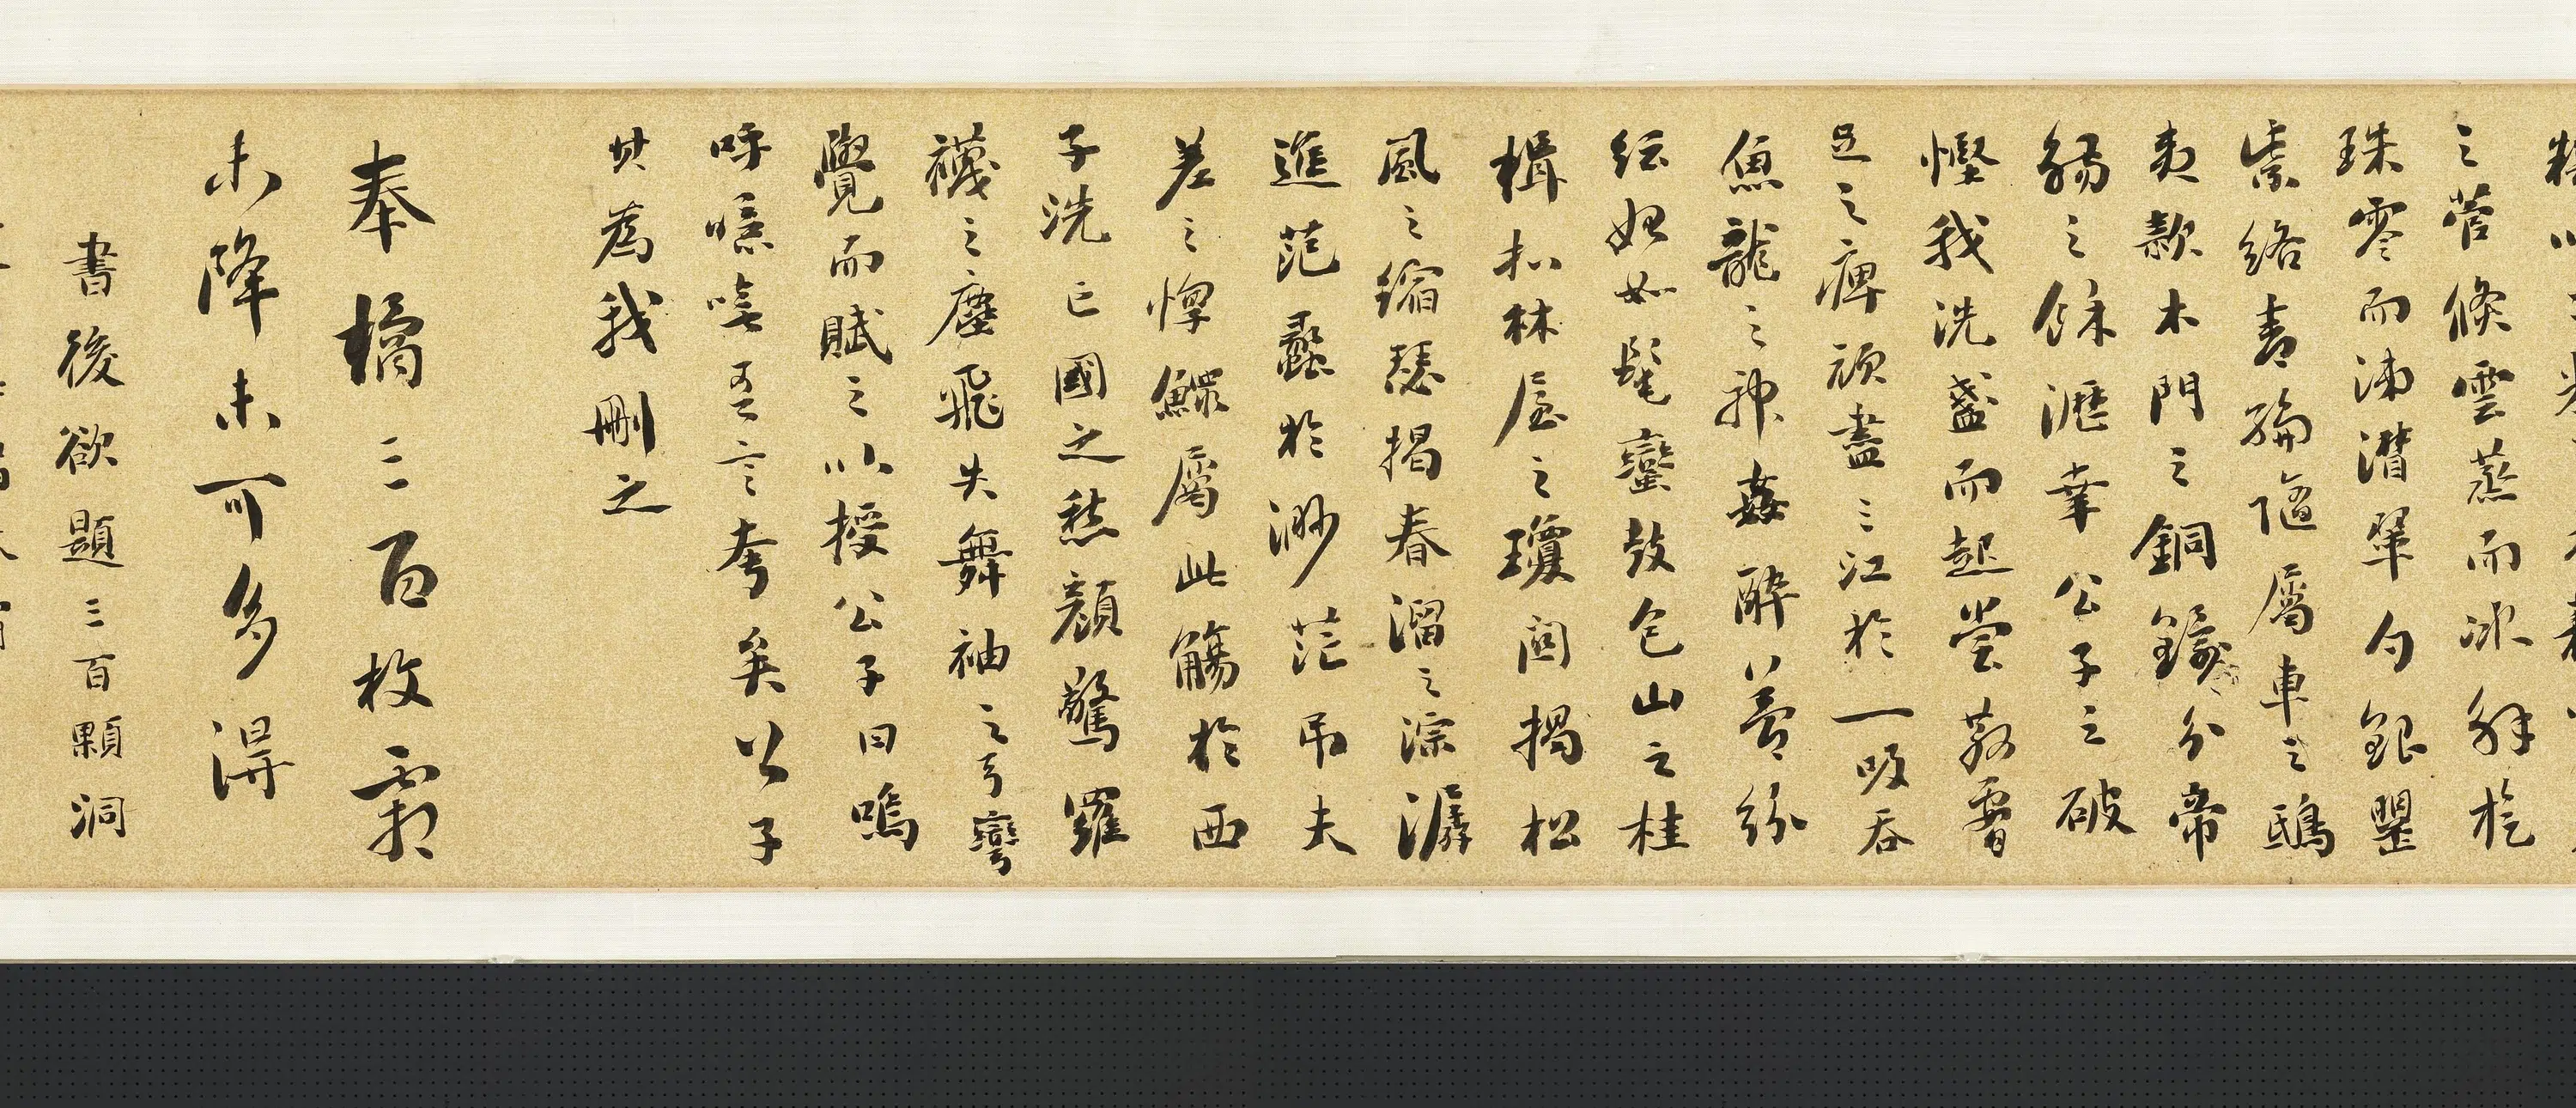 之菅倏雲蒸而冰解旋
珠零而涕潸翠勺銀罌
紫絡青綸隨屬車之鴟
夷款木門之銅鐶分帝
觴之餘瀝幸公子之破
慳我洗盞而起嘗散腰
足之痺頑盡三江於一吸吞
魚龍之神姦醉夢紛
紜始如髦蠻鼓包山之桂
楫扣林屋之瓊關揭松
風之縮瑟揭春溜之淙潺
進范蠡於渺茫弔夫
差之惸鰥屬此觴於西
子洗亡國之愁顏驚羅
襪之塵飛失舞袖之弓彎
覺而賦之以授公子曰嗚
呼噫嘻吾言夸矣公子
其為我刪之
奉橘三百枚霜
未降未可多得
書後欲題三百顆洞